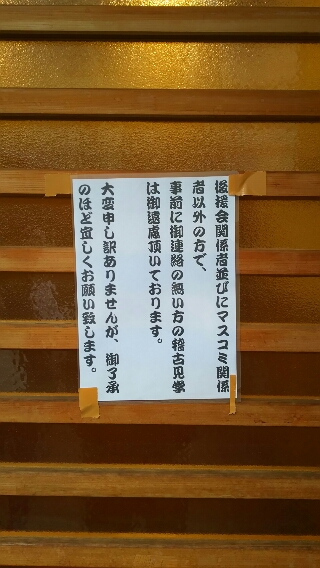 後援会関係者並びにマスコミ関係
者以外の方で、
事前に御連絡の無い方の稽古見学
は御遠慮頂いております。
大変申し訳ありませんが、御了承
のほど宜しくお願い致します。